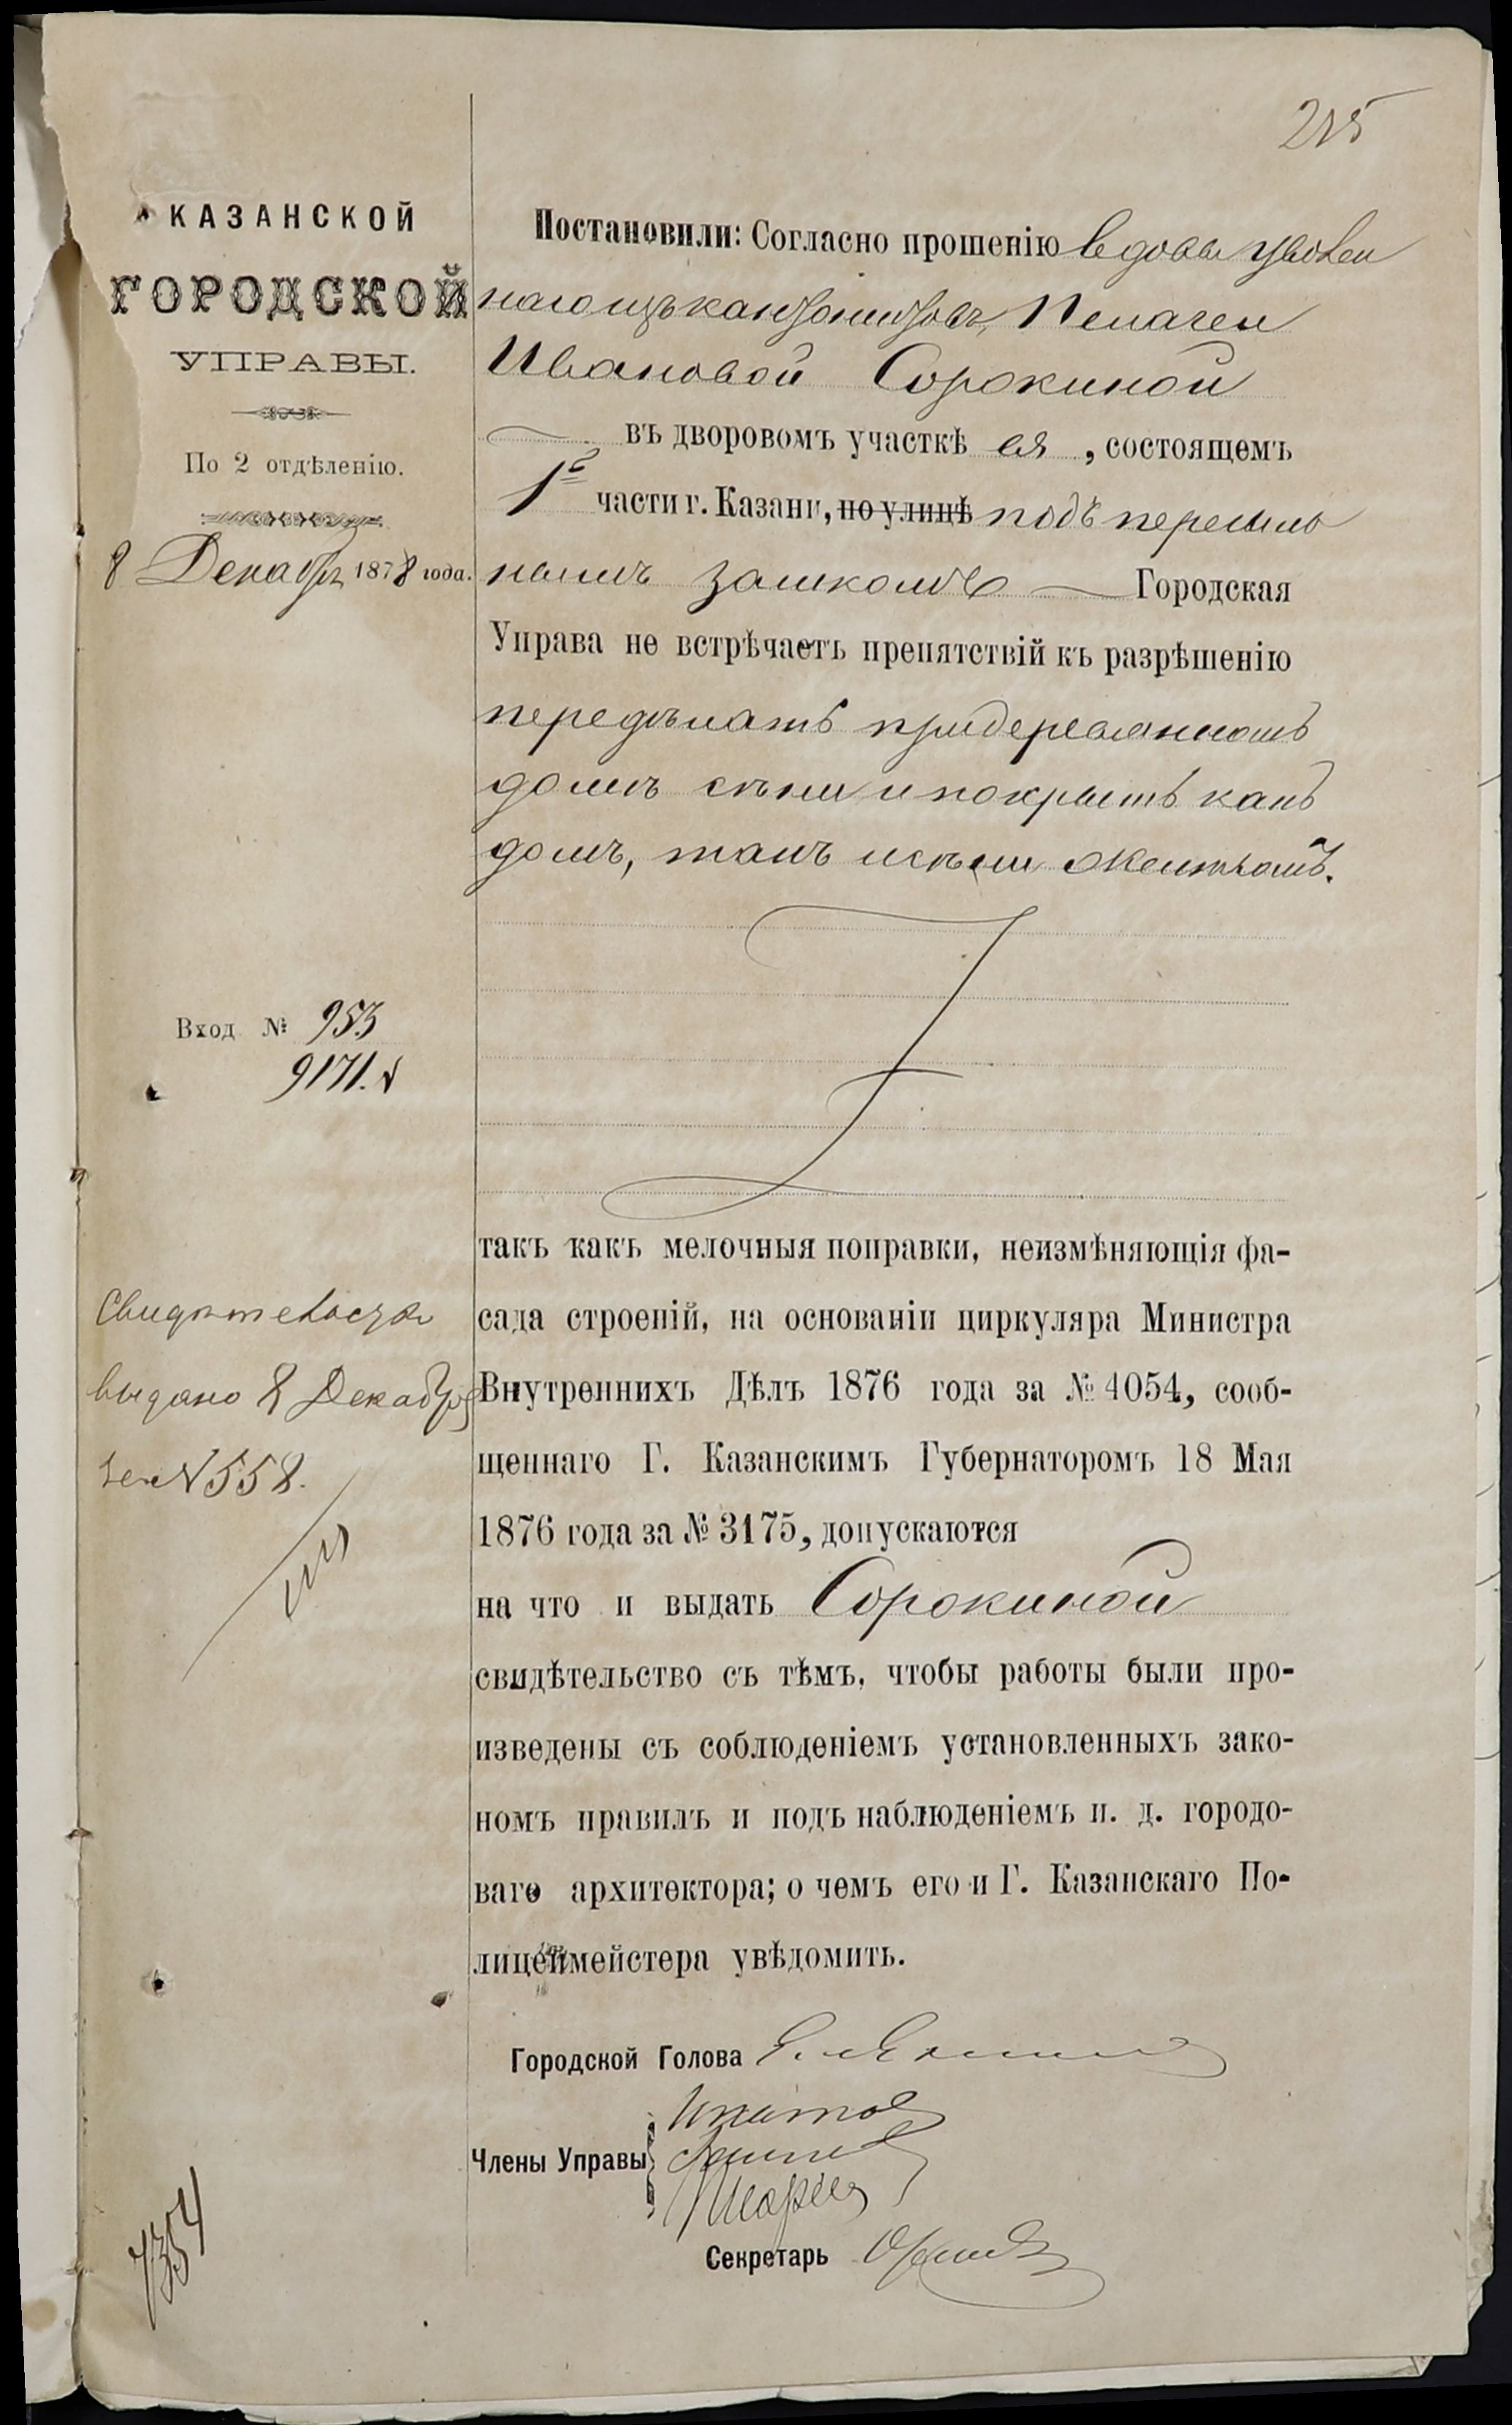 215
КАЗАНСКОЙ
ГОРОДСКОЙ
УПРАВЫ.
По 2 отдѣленію.
8 Декабря 1878 года.
Вход № 953
9171.
Свидѣтельство
выдано 8 Декабря
за № 558.
7354
Постановили: Согласно прошенію вдовы уволен
наго изъ кантонистовъ, Пелагеи
Ивановой Сорокиной
въ дворовомъ участкѣ ея, состоящемъ
1й части г. Казани, по улицѣ подъ пересыль
нымъ замкомъ Городская
Управа не встрѣчаетъ препятствій къ разрѣшенію
передѣлать при деревянномъ
домѣ сѣни и покрыть какъ
домъ, такъ и сѣни желѣзомъ.
такъ какъ мелочныя поправки, неизмѣняющія фа-
сада строеній, на основаніи циркуляра Министра
Внутреннихъ Дѣлъ 1876 года за № 4054, сооб-
щеннаго Г. Казанскимъ Губернаторомъ 18 Мая
1876 года за № 3175, допускаются
на что и выдать Сорокиной
свидѣтельство съ тѣмъ, чтобы работы были про-
изведены съ соблюденіемъ установленныхъ зако-
номъ правилъ и подъ наблюденіемъ и. д. городо-
ваго архитектора; о чемъ его и Г. Казанскаго По-
лицеймейстера увѣдомить.
Городской Голова
Члены Управы
Секретарь